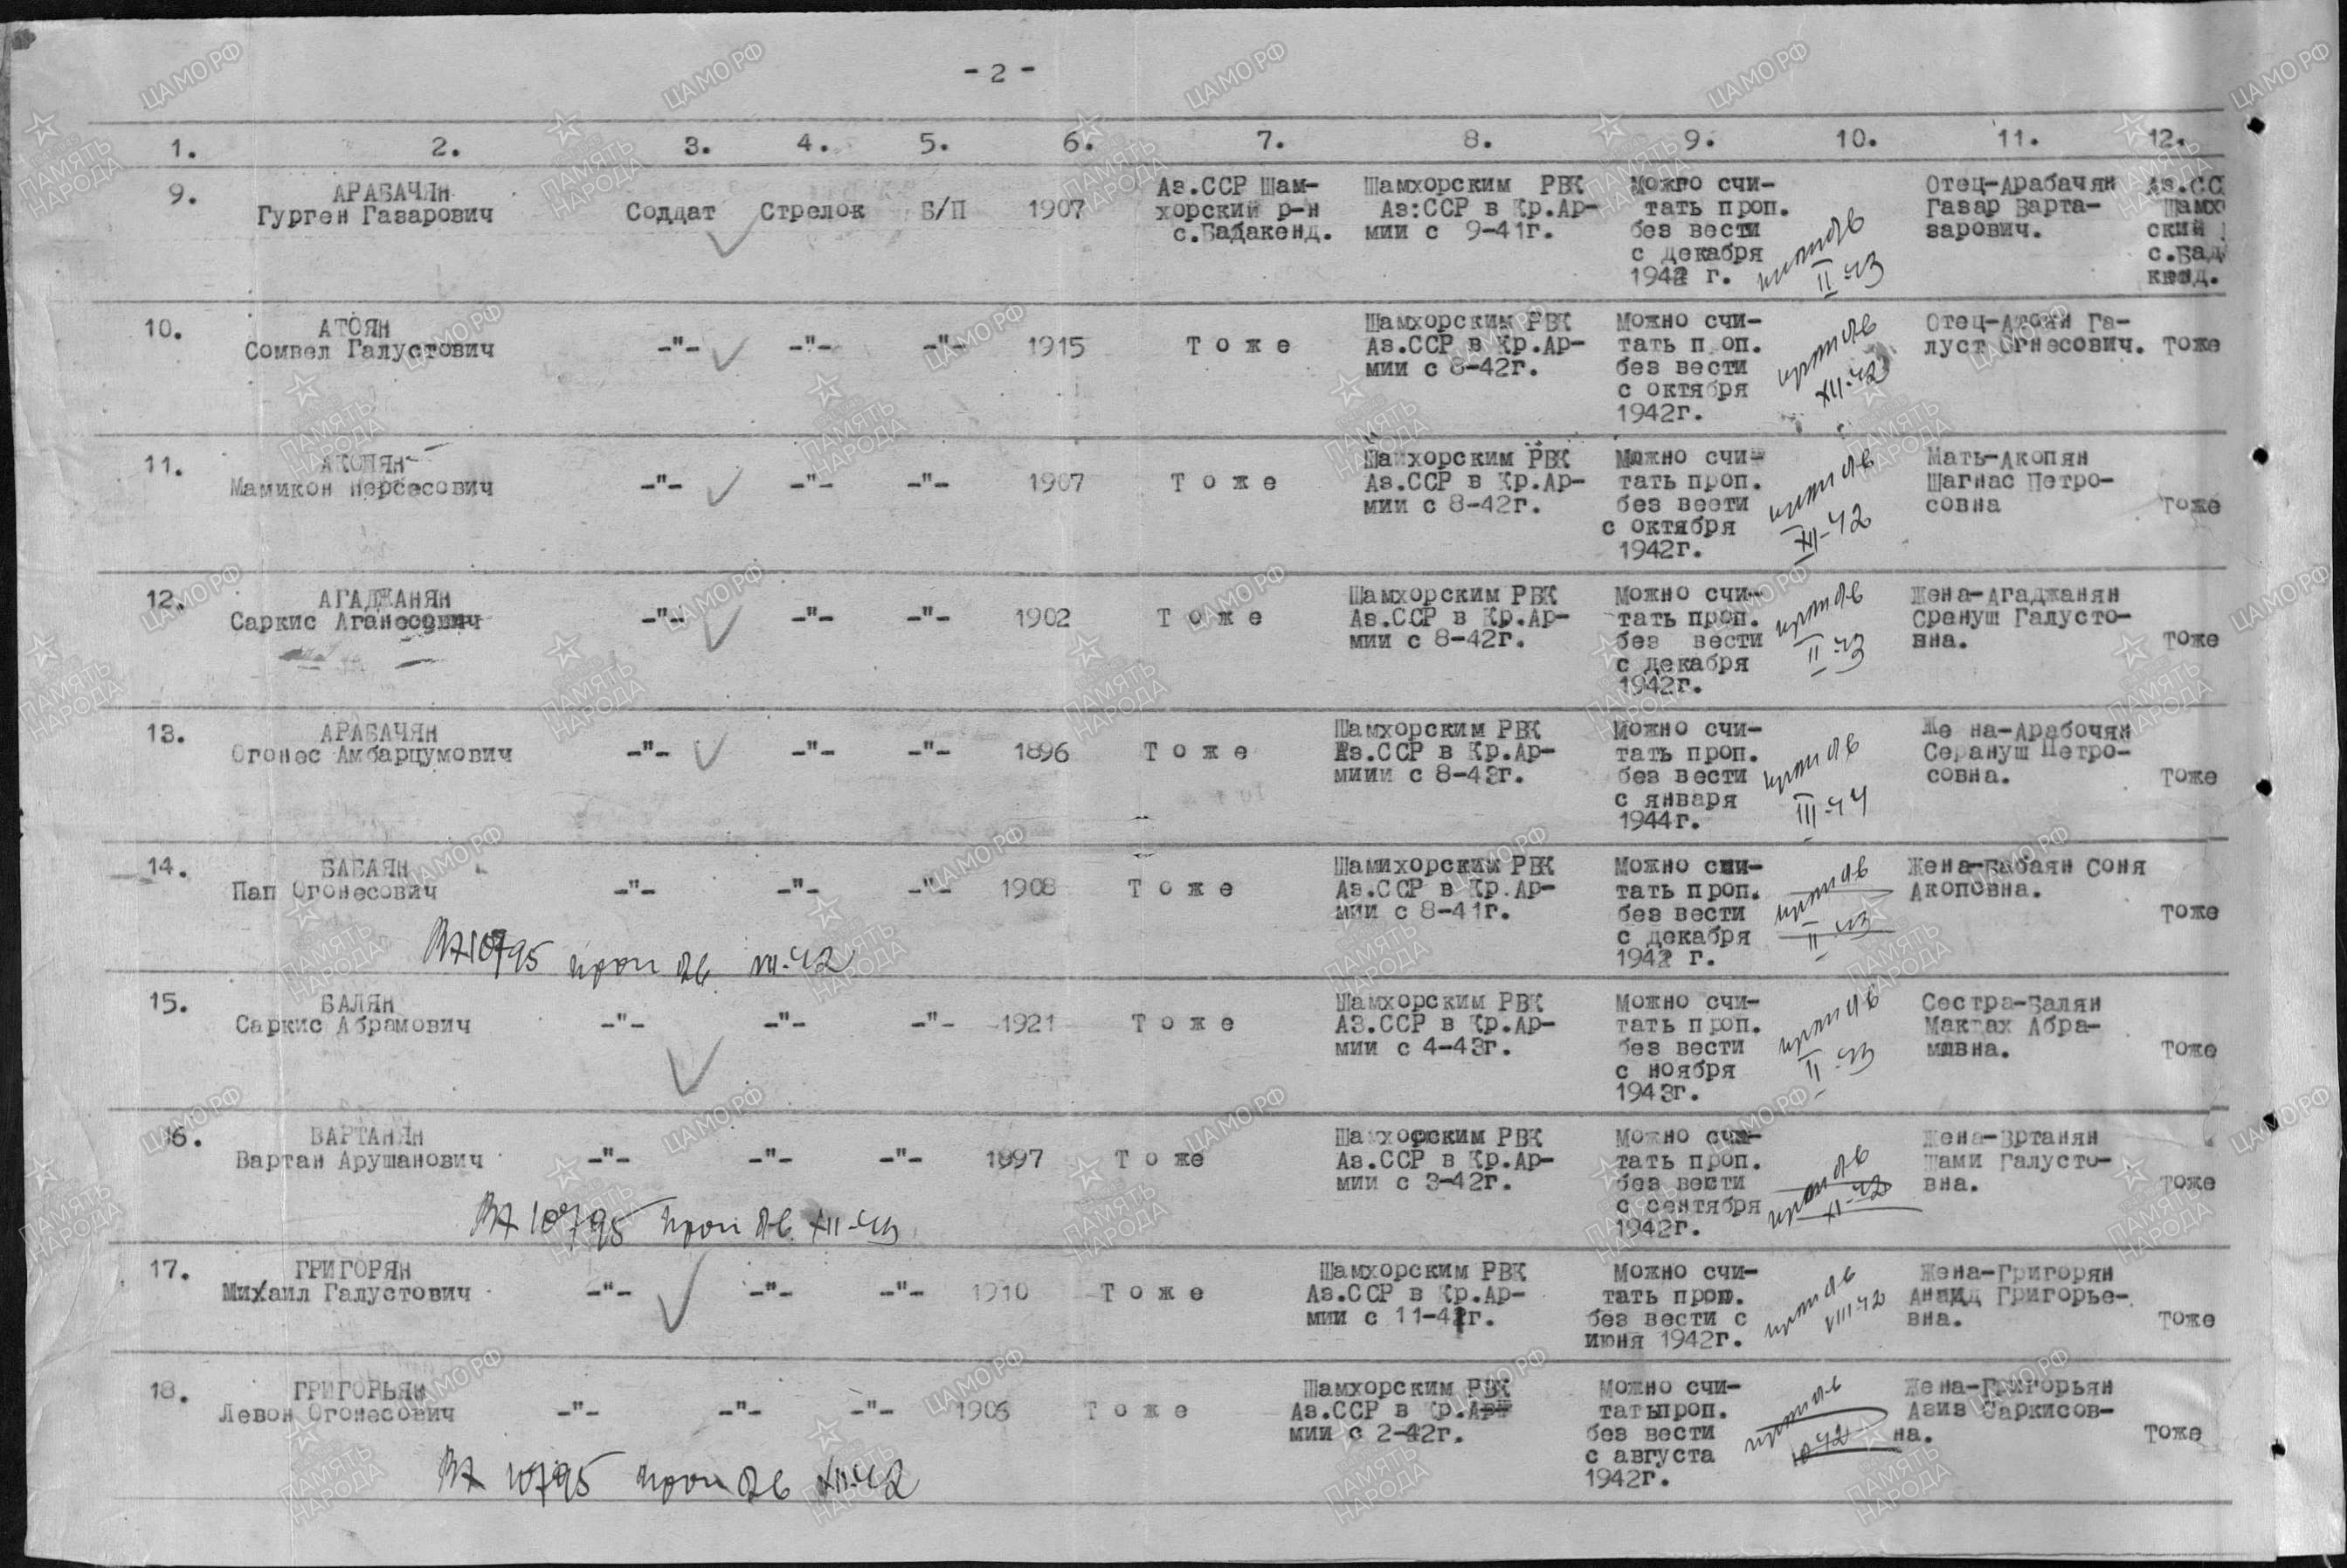 - 2 -
1. 2. 3. 4. 5. 6. 7. 8. 9. 10. 11. 12.
9. АРАБАЧЯН
Гурген Газарович Солдат Стрелок Б/П 1907
Аз.ССР Шам-
хорский р-н
с.Бадакенд.
Шамхорским РВК
Аз:ССР в Кр.Ар-
мии с 9-41г.
Можно счи-
тать проп.
без вести
с декабря
1942 г.
проп б/в
II-43
Отец-Арабачян
Газар Варта-
зарович.
Аз.СС
Шамх
ский
с.Бад
кенд.
10. АТОЯН
Сомвел Галустович -"- -"- -"- 1915 Т о ж е
Шамхорским РВК
Аз.ССР в Кр.Ар-
мии с 8-42г.
Можно счи-
тать п оп.
без вести
с октября
1942г.
проп б/в
XII-42
Отец-Атоян Га-
луст Огнесович. Тоже
11. АКОПЯН
Мамикон Нерсесович -"- -"- -"- 1907 Т о ж е
Шамхорским РВК
Аз.ССР в Кр.Ар-
мии с 8-42г.
Можно счи-
тать проп.
без вести
с октября
1942г.
проп б/в
XII-42
Мать-Акопян
Шагнас Петро-
совна Тоже
12. АГАДЖАНЯН
Саркис Аганесович -"- -"- -"- 1902 Т о ж е
Шамхорским РВК
Аз.ССР в Кр.Ар-
мии с 8-42г.
Можно счи-
тать проп.
без вести
с декабря
1942г.
проп б/в
II-43
Жена-Агаджанян
Срануш Галусто-
вна. Тоже
13. АРАБАЧЯН
Огонес Амбарцумович -"- -"- -"- 1896 Т о ж е
Шамхорским РВК
Аз.ССР в Кр.Ар-
миии с 8-43г.
Можно счи-
тать проп.
без вести
с января
1944г.
проп б/в
III-44
Же на-Арабочян
Серануш Петро-
совна. Тоже
14. БАБАЯН
Пап Огонесович -"- -"- -"- 1908 Т о ж е
Шамихорским РВК
Аз.ССР в Кр.Ар-
мии с 8-41г.
Можно счи-
тать проп.
без вести
с декабря
1942 г.
проп б/в
II-43
Жена-Бабаян Соня
Акоповна.
Тоже
10795 проп б/в VII-42
15. БАЛЯН
Саркис Абрамович -"- -"- -"- 1921 Т о ж е
Шамхорским РВК
АЗ.ССР в Кр.Ар-
мии с 4-43г.
Можно счи-
тать проп.
без вести
с ноября
1943г.
проп б/в
II-43
Сестра-Балян
Мактах Абра-
мовна. Тоже
16. ВАРТАНЯН
Вартан Арушанович -"- -"- -"- 1897 Т о же
Шамхорским РВК
Аз.ССР в Кр.Ар-
мии с 3-42г.
Можно счи-
тать проп.
без вести
с сентября
1942г.
проп б/в
XI-42
Жена-Вртанян
Шами Галусто-
вна. Тоже
10795 проп б/в XII-43
17. ГРИГОРЯН
Михаил Галустович -"- -"- -"- 1910 Т о ж е
Шамхорским РВК
Аз.ССР в Кр.Ар-
мии с 11-41г.
Можно счи-
тать проп.
без вести с
июня 1942г.
проп б/в
VIII-42
Жена-Григорян
Анаид Григорье-
вна. Тоже
18. ГРИГОРЬЯН
Левон Огонесович -"- -"- -"- 1906 Т о ж е
Шамхорским РВК
Аз.ССР в Кр.Ар
мии с 2-42г.
Можно счи-
татьпроп.
без вести
с августа
1942г.
проп б/в
10-42
Жена-Григорьян
Азиз Саркисов-
на. Тоже
10795 проп б/в XII-42